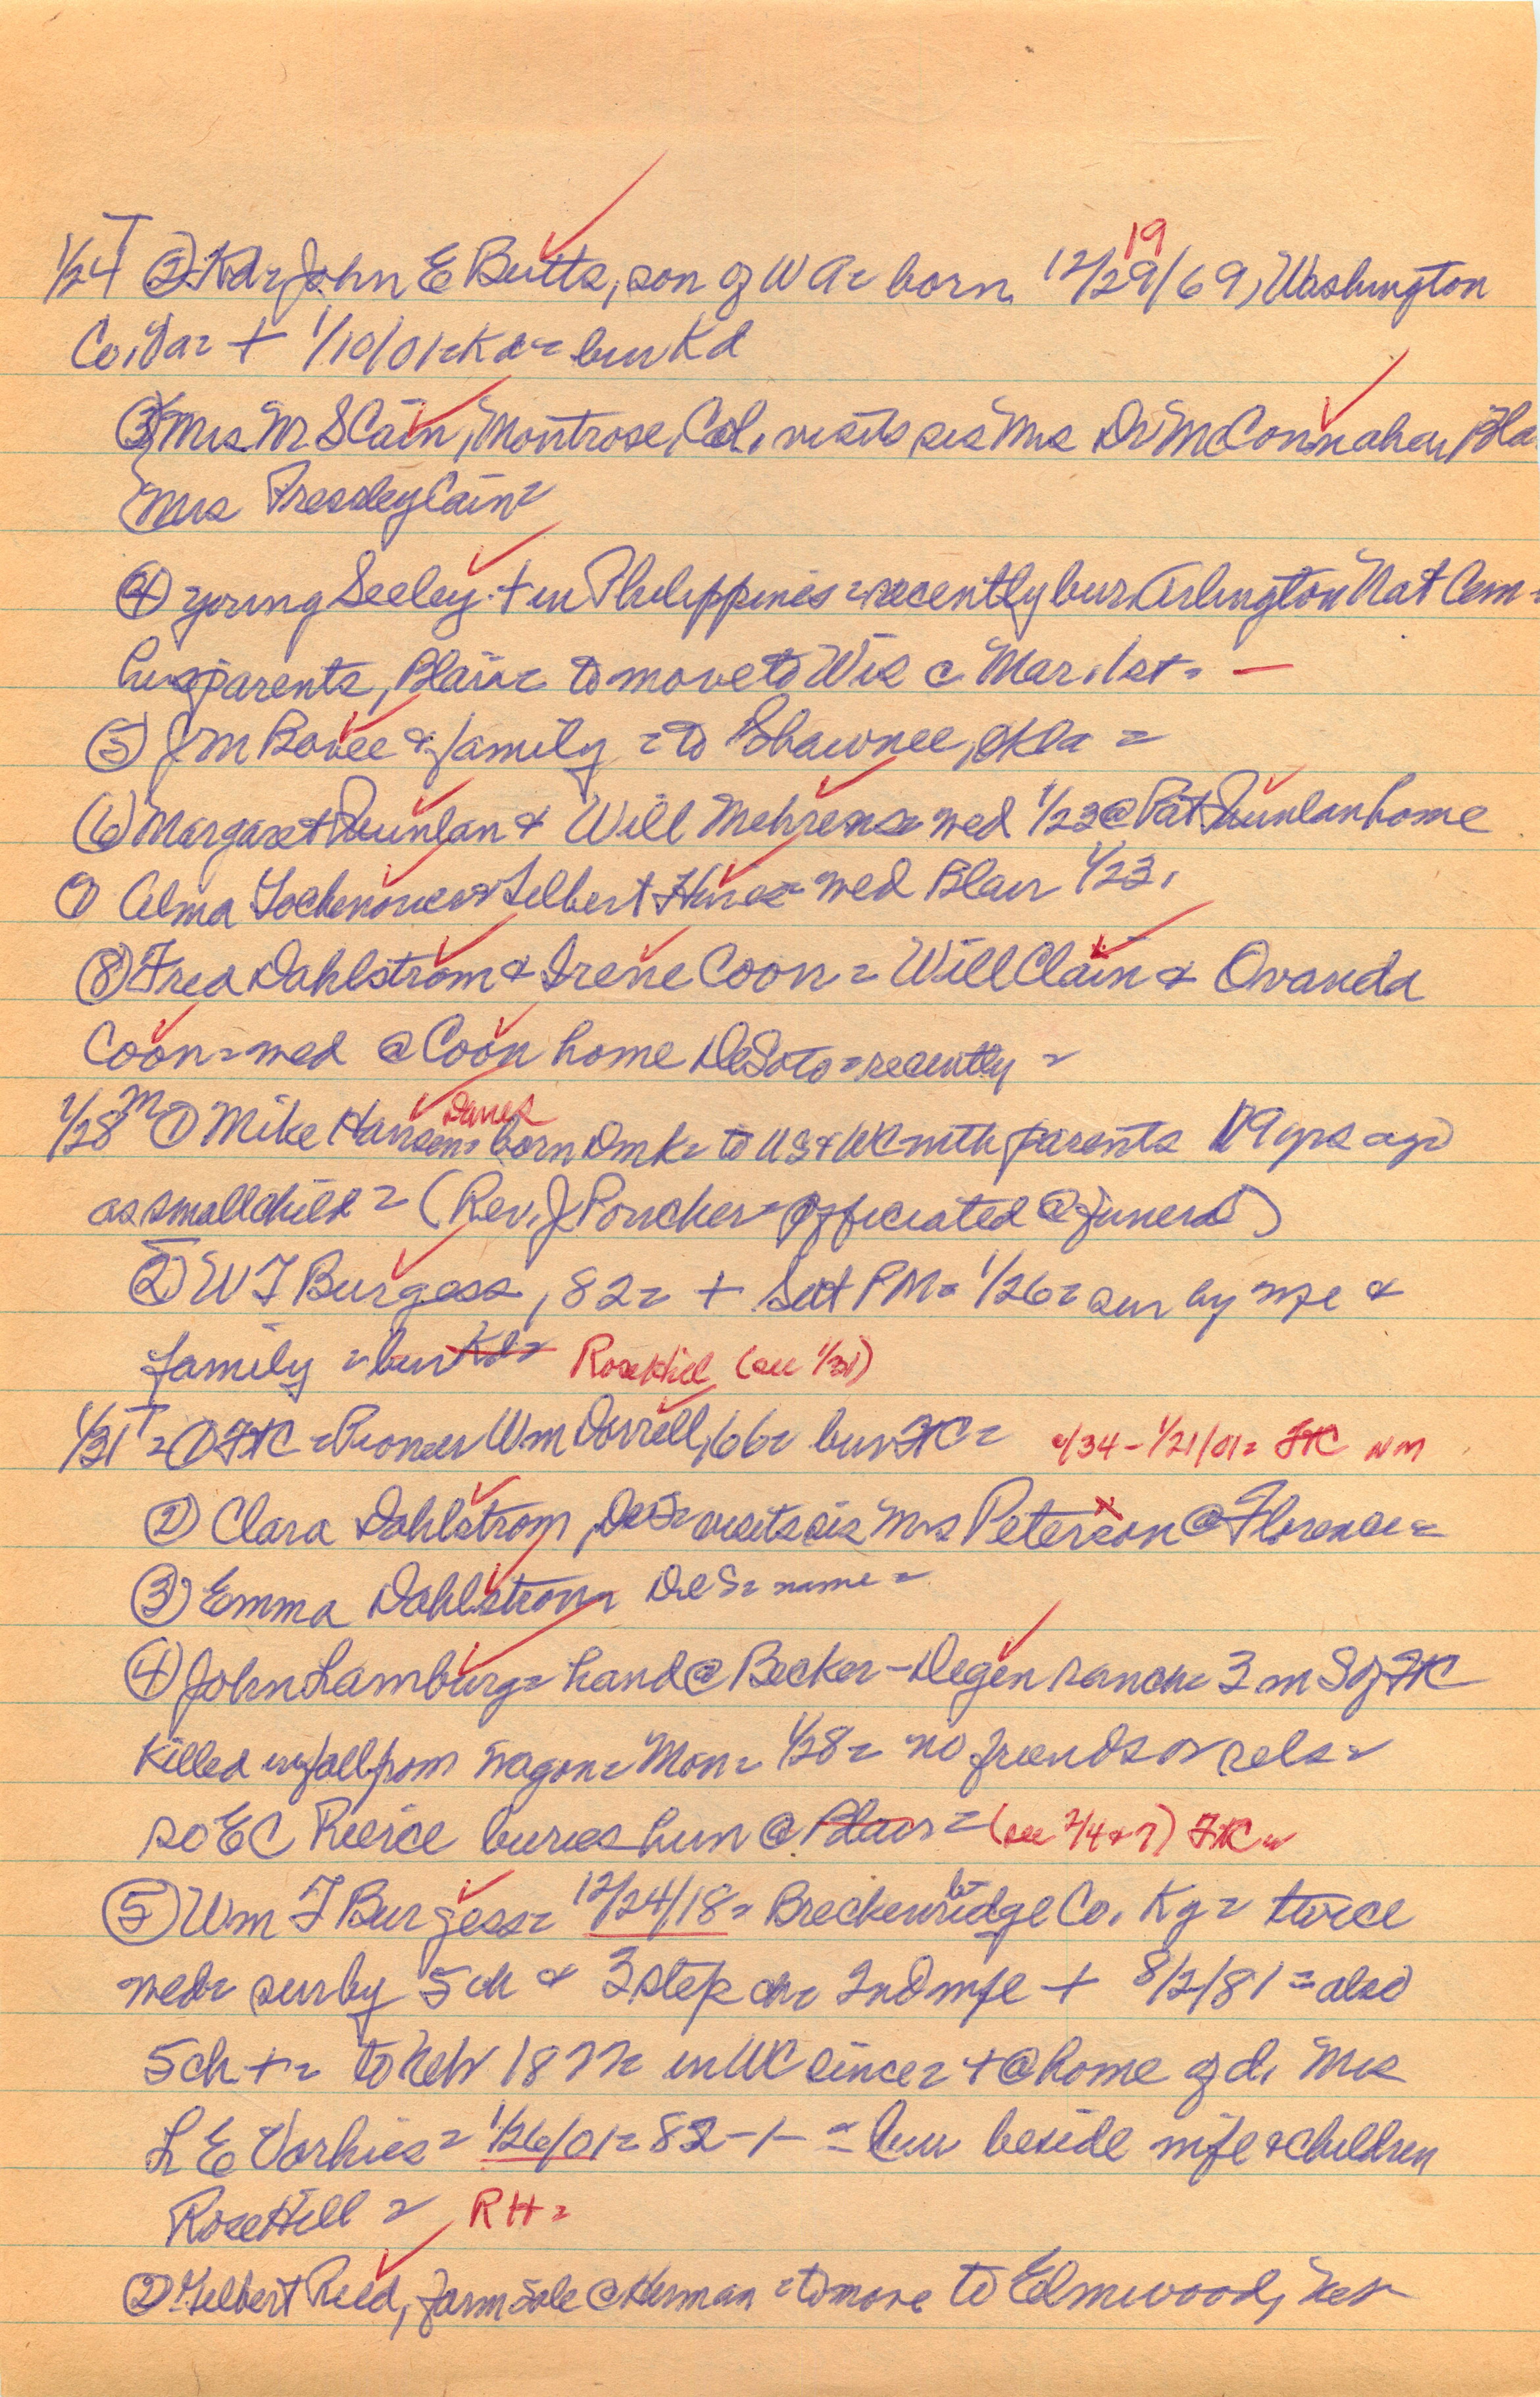 19
1/24 T ② Kd = John E Butts, son of W A = born 12/29/69, Washington
Co, Va = + 1/10/01 = Kd = bur Kd
③ Mrs M S Cain, Montrose, Col, visits sis Mrs Dr McConnahey, Bla
Mrs Presley Cain =
④ young Seeley + in Philippines = recently bur Arlington Nat Cem =
his parents, Blair = to move to Wis c Mar. 1st = —
⑤ J M Bovee & family = to Shawnee, Okla =
⑥ Margaret Quinlan & Will Mehrens = wed 1/23 @ Pat Quinlan home
⑦ Alma & Gilbert Hines = wed Blair 1/23.
⑧ Fred Dahlstrom & Irene Coon = Will Clain & Ovanda
Coon = wed @ Coon home DeSoto = recently =
Danes
1/28 M ① Mike Hansen = born Dmk = to US & WC with parents 19 yrs ago
as small child = (Rev. J Poucher = officiated @ funeral)
② W F Burgess, 82 = + Sat PM = 1/26 = sur by wife &
family = bur Kd = Rose Hill (see 1/31)
1/31 T = ① FtC = Pioneer Wm Dorrell, 66 = bur FtC = /34 - 1/21/01 = FtC NM
② Clara Dahlstrom, DeS = visits sis Mrs Peterson @ Florence =
③ Emma Dahlstrom DeS = name =
④ John Lamburg = hand @ Becker - Degen ranch = 3 m S of FtC
killed in fall from wagon = Mon = 1/28 = no friends or rels =
so E C Pierce buries him @ Blair = (see 2/4 & 7) FtC =
⑤ Wm F Burgess = 12/24/18 = Breckenridge Co. Ky = twice
wed = sur by 5 ch & 3 step ch = 2nd wife + 8/2/81 = also
5 ch + = to Neb 1877 = in WC since = + @ home of d. Mrs
L E Vorhies = 1/26/01 = 82-1- = bur beside wife & children
Rose Hill = RH =
② Gilbert Reed, farm sale @ Herman = to move to Elmwood, Neb